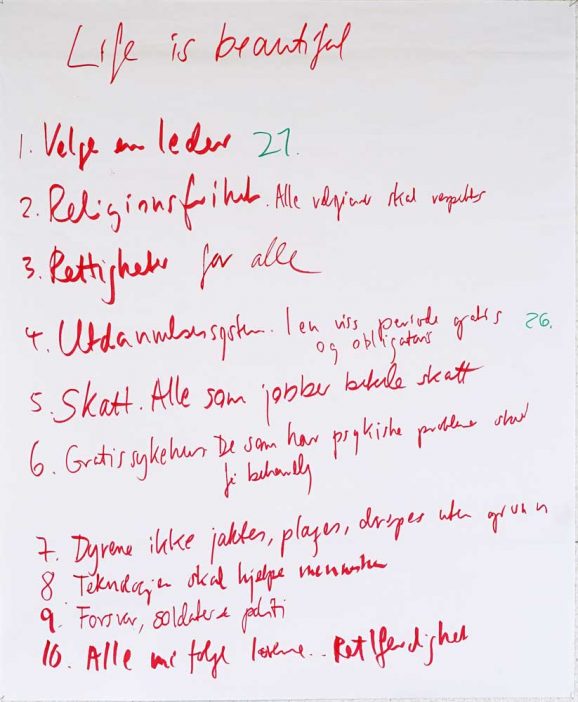 Life is beautiful
1. Velge en leder 21.
2. Religionsfrihet. Alle religioner skal respektes
3. Rettigheter for alle
4. Utdannelsessystem. I en viss periode gratis 26.
og obligatoris
5. Skatt. Alle som jobber betale skatt
6. Gratis sykehus. De som har psykiske probleme skal
få behandlg
7. Dyrene ikke jaktes, plages, drepes uten grunn
8 Teknologien skal hjelpe mennesker
9. Forsvar, soldater politi
10. Alle må følge lovene.. Rettferdighet